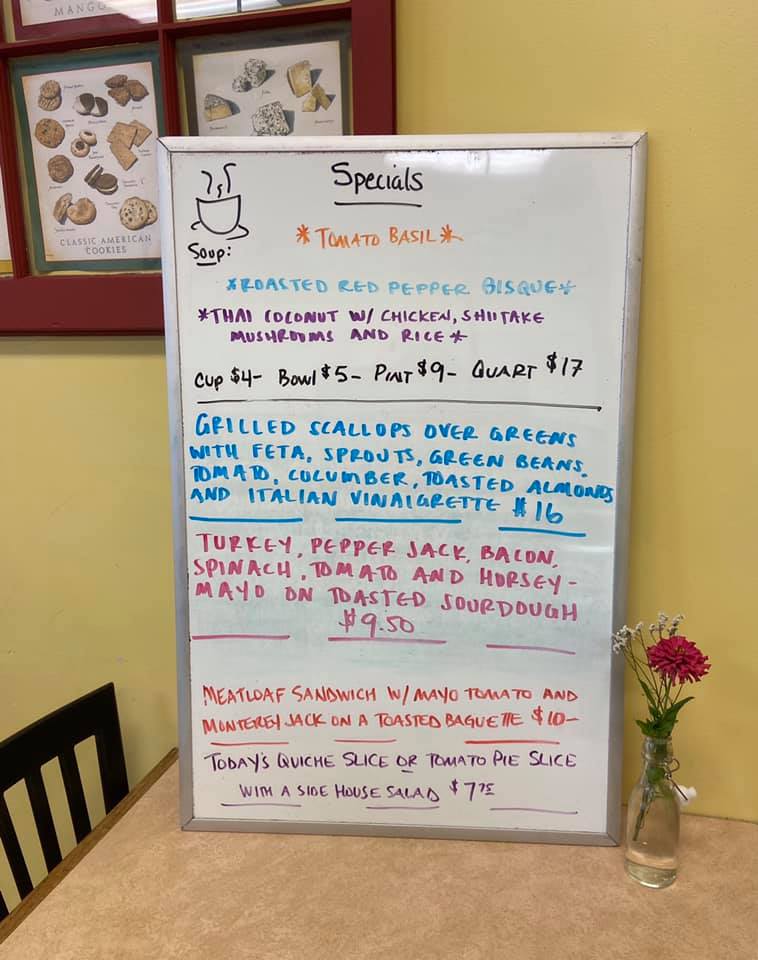 MANGO
CLASSIC AMERICAN
COOKIES
Specials
Soup:
*TOMATO BASIL*
*ROASTED RED PEPPER BISQUE*
*THAI COCONUT W/ CHICKEN, SHIITAKE
MUSHROOMS AND RICE*
CUP $4- BOWL $5- PINT $9- QUART $17
GRILLED SCALLOPS OVER GREENS
WITH FETA, SPROUTS, GREEN BEANS,
TOMATO, CUCUMBER, TOASTED ALMONDS
AND ITALIAN VINAIGRETTE $16
TURKEY, PEPPER JACK, BACON,
SPINACH, TOMATO AND HORSEY-
MAYO ON TOASTED SOURDOUGH
$9.50
MEATLOAF SANDWICH W/ MAYO TOMATO AND
MONTEREY JACK ON A TOASTED BAGUETTE $10-
TODAY'S QUICHE SLICE OR TOMATO PIE SLICE
WITH A SIDE HOUSE SALAD $7.75